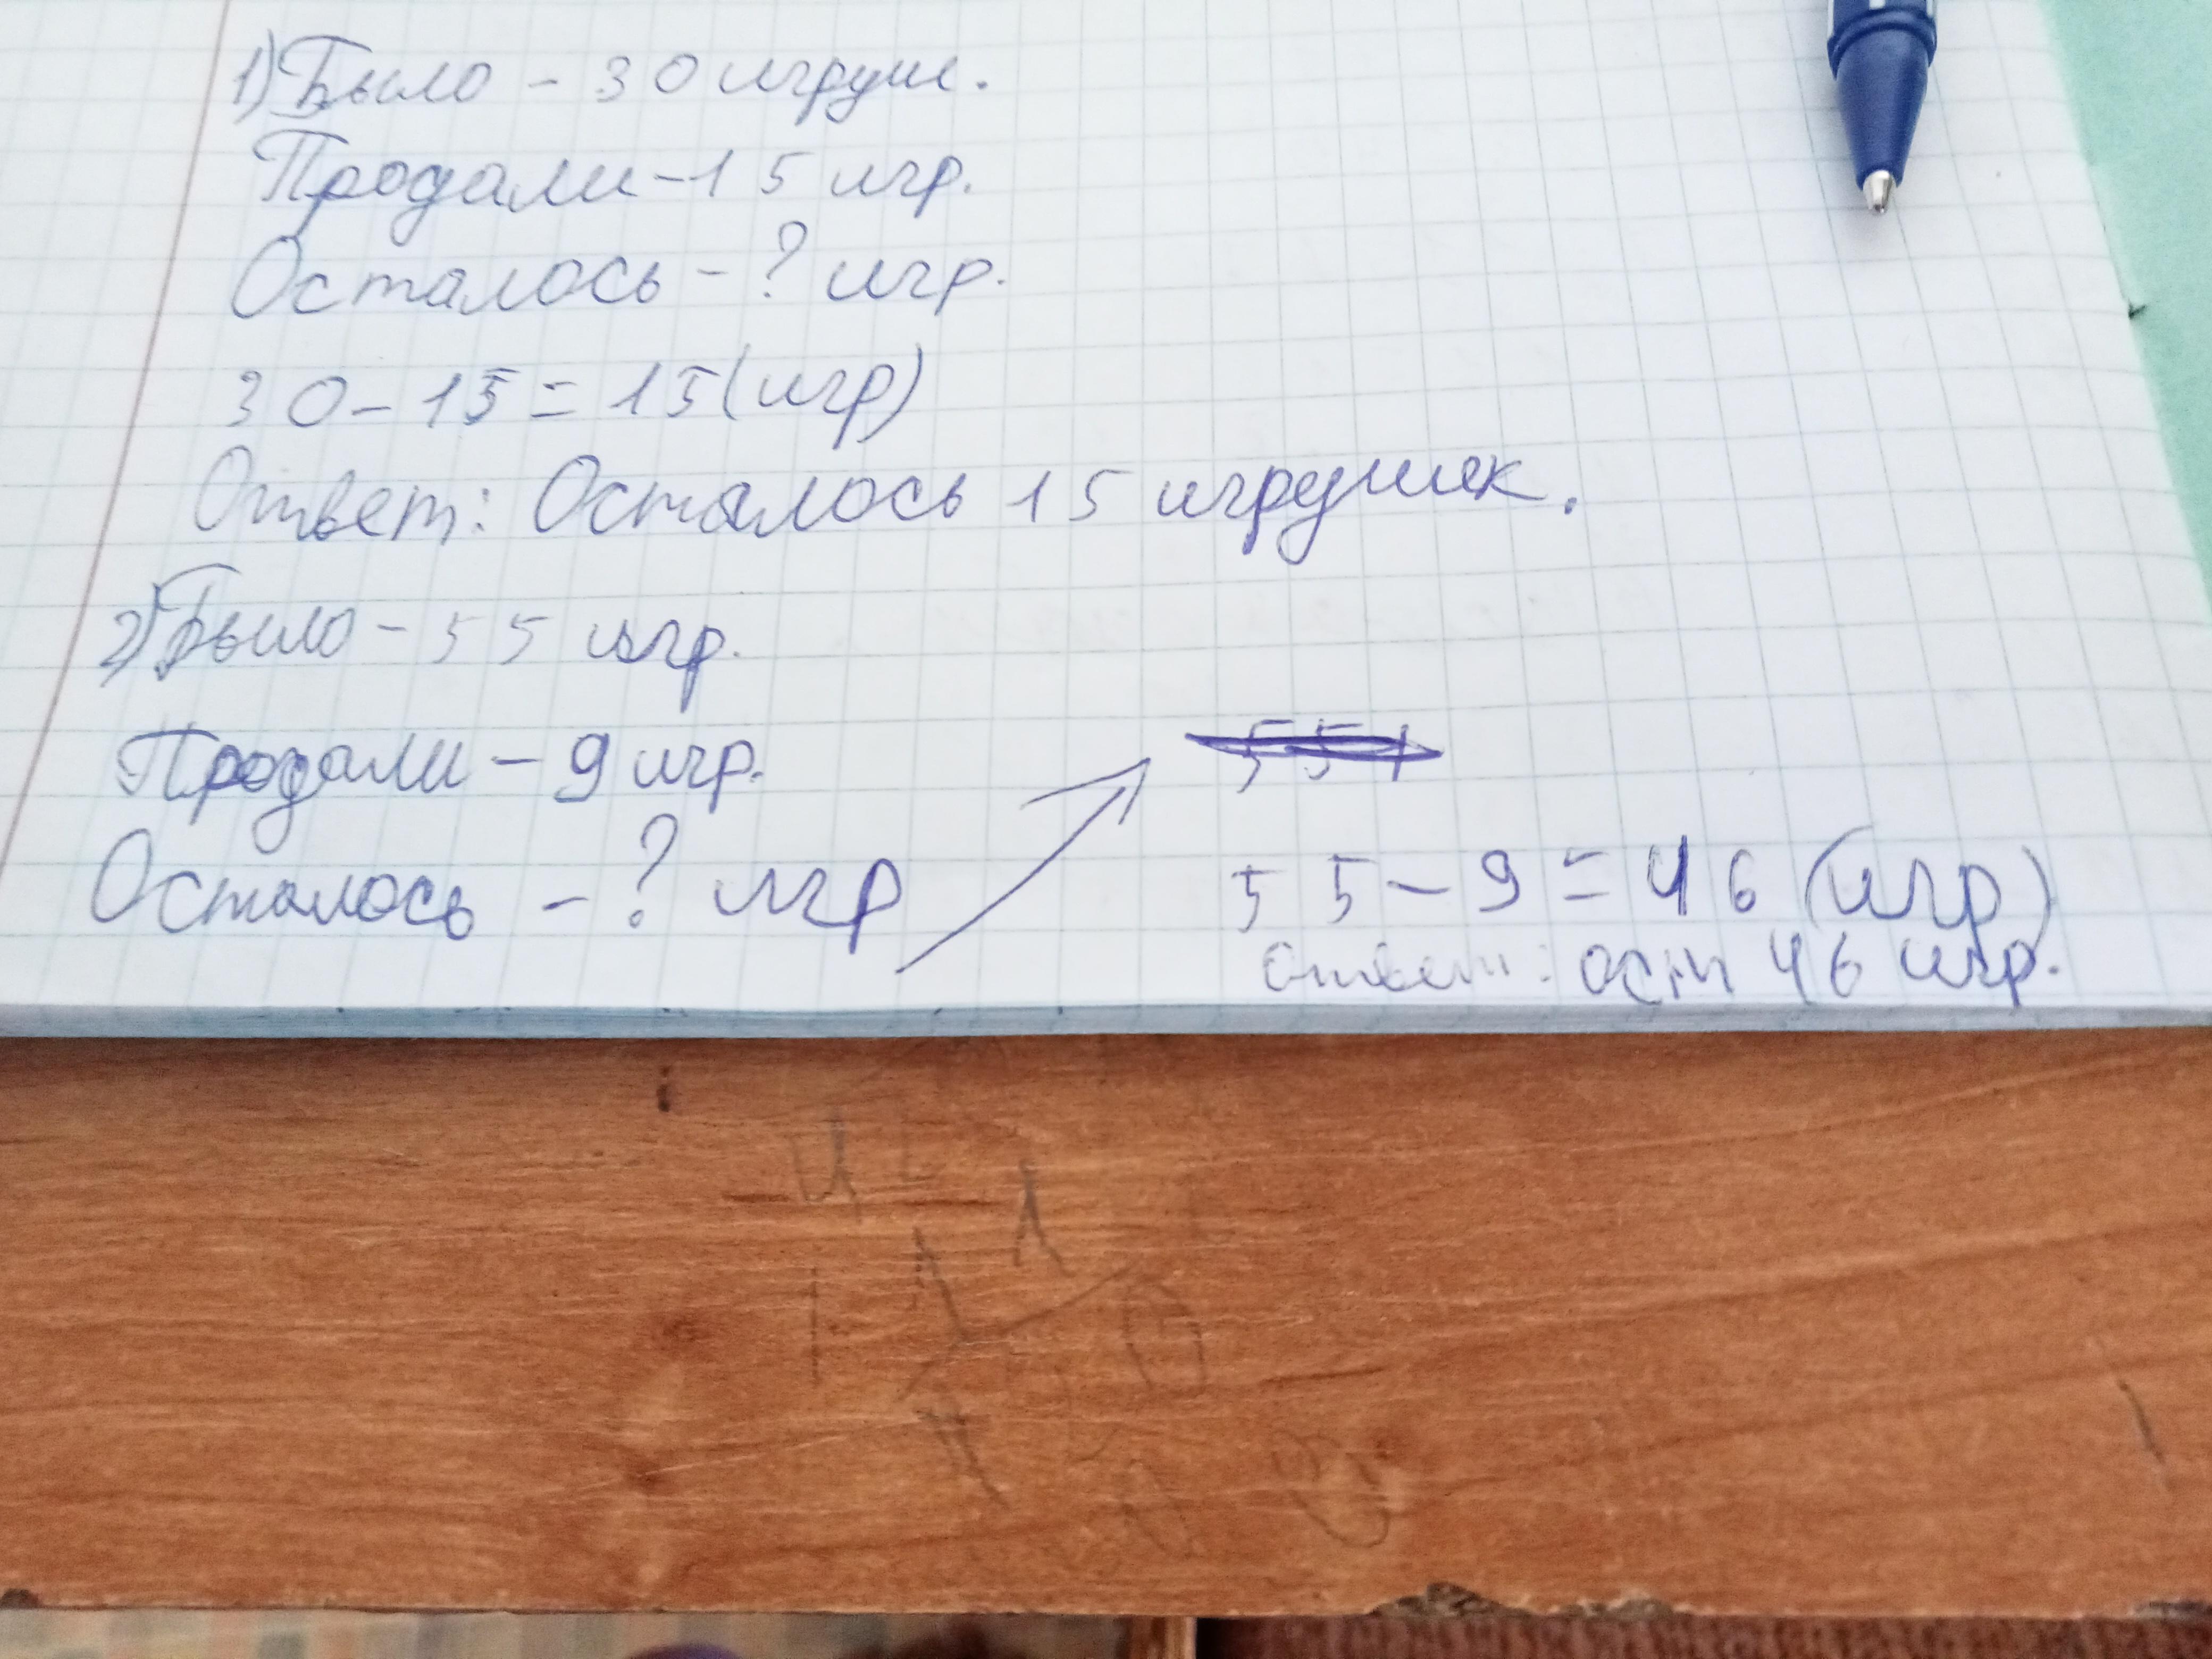 1) Было - 30 игруш.
Продали - 15 игр.
Осталось - ? игр.
30 - 15 = 15 (игр)
Ответ: Осталось 15 игрушек.
2) Было - 55 игр.
Продали - 9 игр.
Осталось - ? игр
55 - 9 = 46 (игр)
ответ: ост 46 игр.